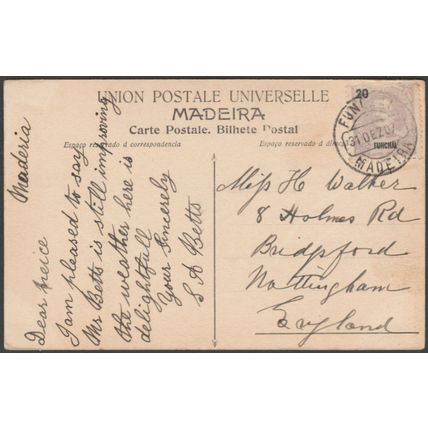 UNION POSTALE UNIVERSELLE
MADEIRA
Carte Postale. Bilhete Postal
Espaço reservado á correspondencia
Espaço reservado á
20
FUNCHAL
31 DEZ 07
MADEIRA
Maderia
Dear neice
I am pleased to say
Mr Betts is still improving
the weather here is
delightfull
Your Sincerely
S A Betts
Miss H Walker
8 Holmes Rd
Bridpsford
Nottingham
England